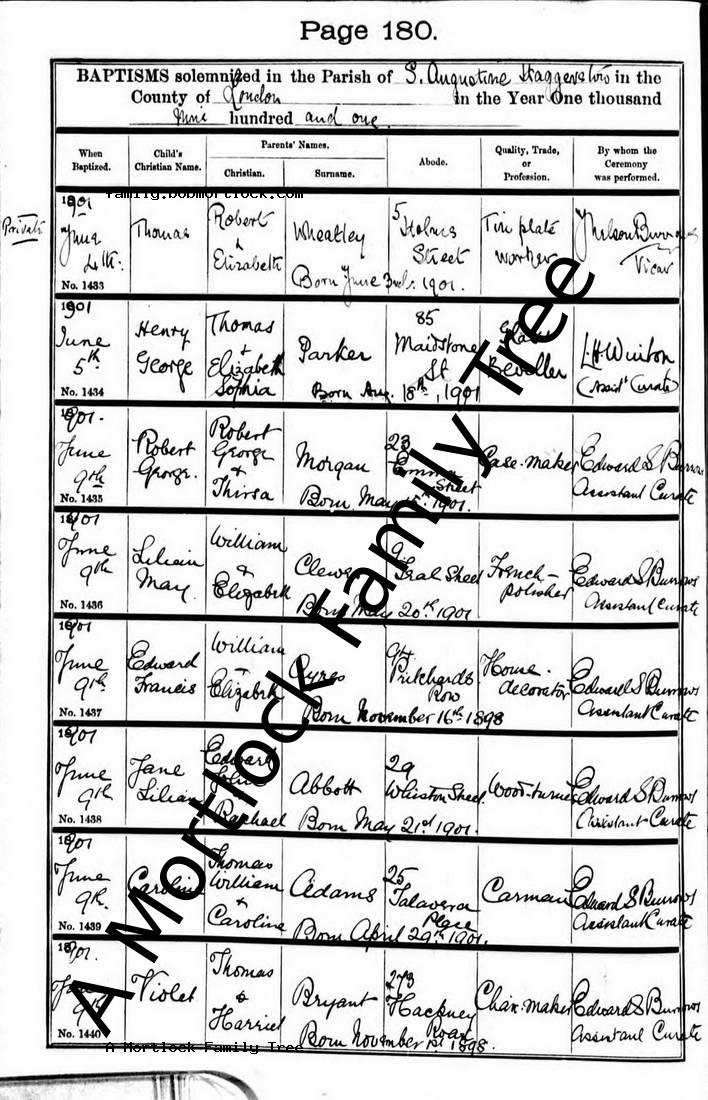 Page 180.
BAPTISMS solemnized in the Parish of S. Augustine Haggerston in the
County of London in the Year One thousand
nine hundred and one.
When Baptized.
Child's Christian Name.
Parents' Names.
Christian.
Surname.
Abode.
Quality, Trade, or Profession.
By whom the Ceremony was performed.
family.bobmortlock.com
Private
1901
June
4th.
No. 1433
Thomas
Robert
&
Elizabeth
Wheatley
5 Holms
Street
Tin plate
worker
Vicar
Born June 3rd. 1901.
1901
June
5th
No. 1434
Henry
George
Thomas
+
Elizabeth
Sophia
Parker
85
Maidstone
St
Beveller
(Assist Curate)
Born Aug. 18th, 1901
1901.
June
9th
No. 1435
Robert
George.
Robert
George
+
Thirsa
Morgan
23
Emma
Street
Case-maker
Edward S Burrows
Assistant Curate
Born May 1901.
1901
June
9th
No. 1436
Lilian
May.
William
&
Elizabeth
9
Teal Street
French-
polisher
Edward S Burrows
Assistant Curate
Born May 20th 1901
1901
June
9th
No. 1437
Edward
Francis
William
+
Elizabeth
94
Pritchards
Row
House-
decorator
Edward S Burrows
Assistant Curate
Born November 16th 1898
1901
June
9th
No. 1438
Jane
Lilian
Edward
Raphael
Abbott
29
Whiston Street
Wood-turner
Edward S Burrows
Assistant Curate
Born May 21st 1901.
1901
June
9th.
No. 1439
Caroline
Thomas
William
+
Caroline
Adams
25
Talavera
Place
Carman
Edward S Burrows
Assistant Curate
Born April 29th 1901.
1901.
June
9th
No. 1440
Violet
Thomas
&
Harriet
Bryant
273
Hackney
Road
Chair-maker
Edward S Burrows
Assistant Curate
Born November 1st 1898.
A Mortlock Family Tree
A Mortlock Family Tree